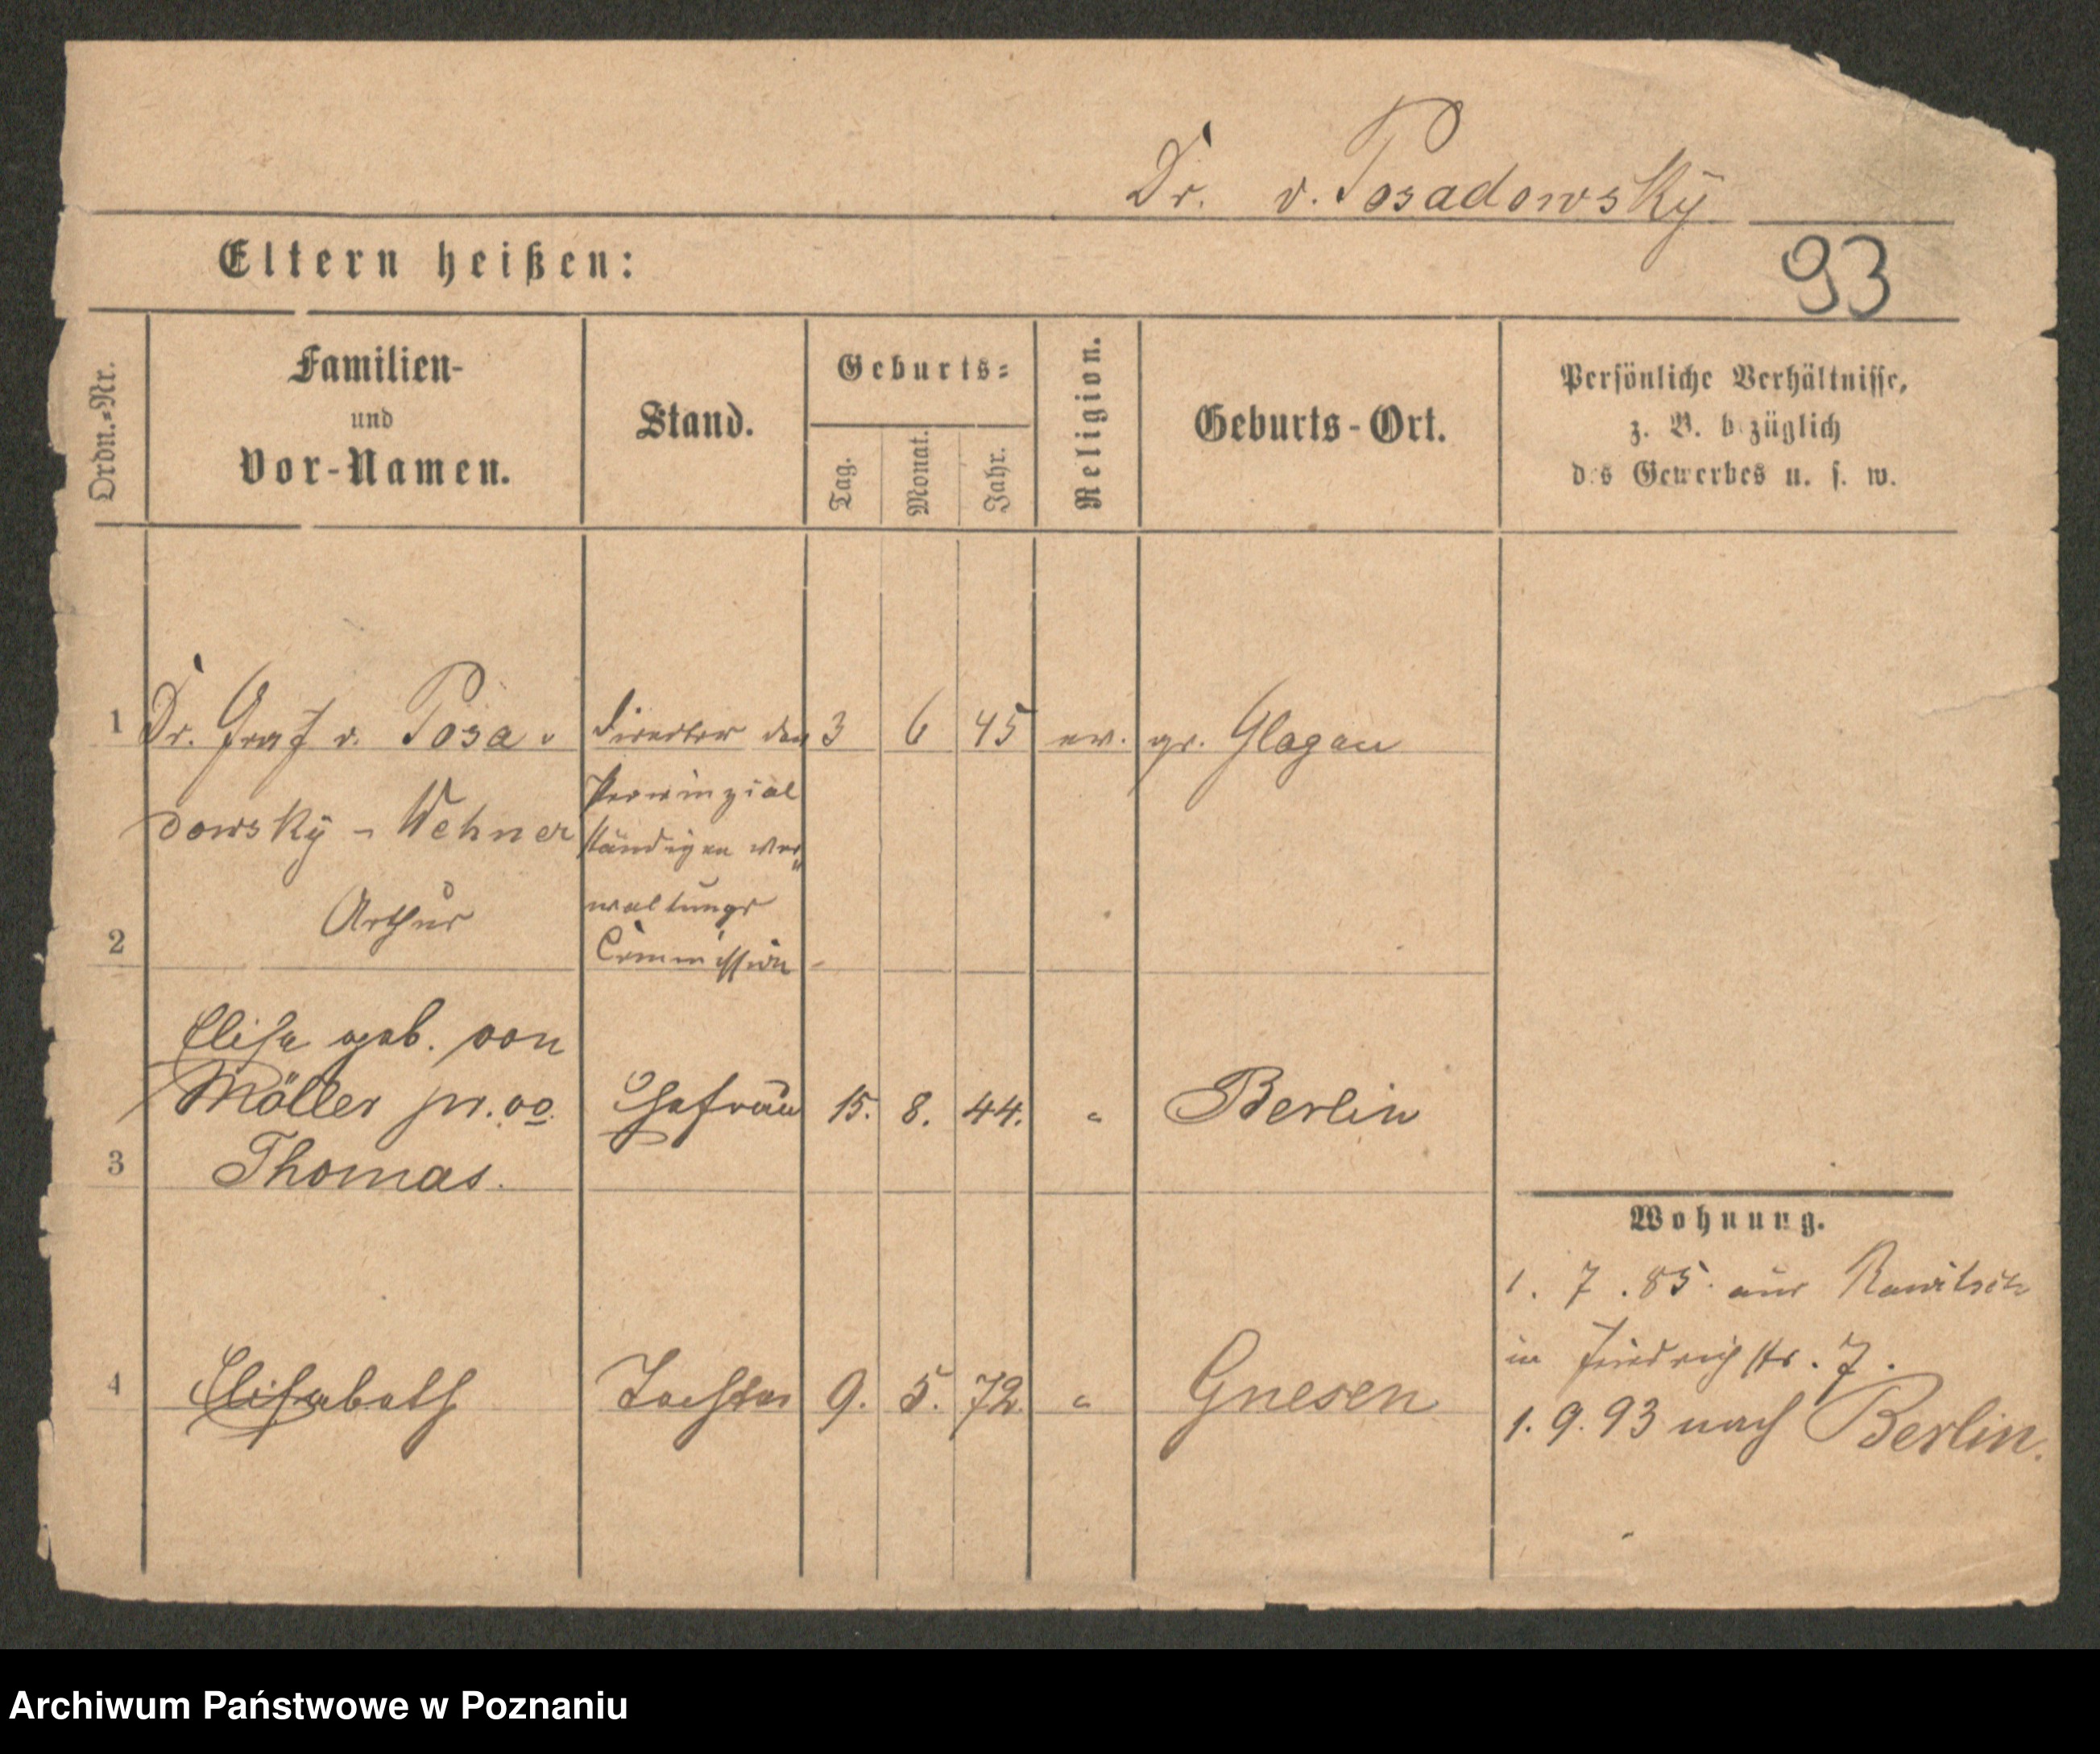 Dr. v. Posadowsky
93
Eltern heißen:
Ordn.-Nr.
Familien-
und
Vor-Namen.
Stand.
Geburts-
Tag.
Monat.
Jahr.
Religion.
Geburts-Ort.
Persönliche Verhältnisse,
z. B. bezüglich
des Gewerbes u. s. w.
1 Dr. Graf v. Posa- Director der 3 6 45 ev. gr. Glogau
Provinzial
dowsky - Wehner ständigen Ver-
waltungs
Arthur
2 Commission
Elise geb. von
Möller pr. vo. Ehefrau 15. 8. 44. " Berlin
3 Thomas.
Wohnung.
1. 7. 85. aus Rawitsch
in Friedrichstr. 7.
4 Elisabeth Tochter 9. 5. 72. " Gnesen
1. 9. 93 nach Berlin.
Archiwum Państwowe w Poznaniu